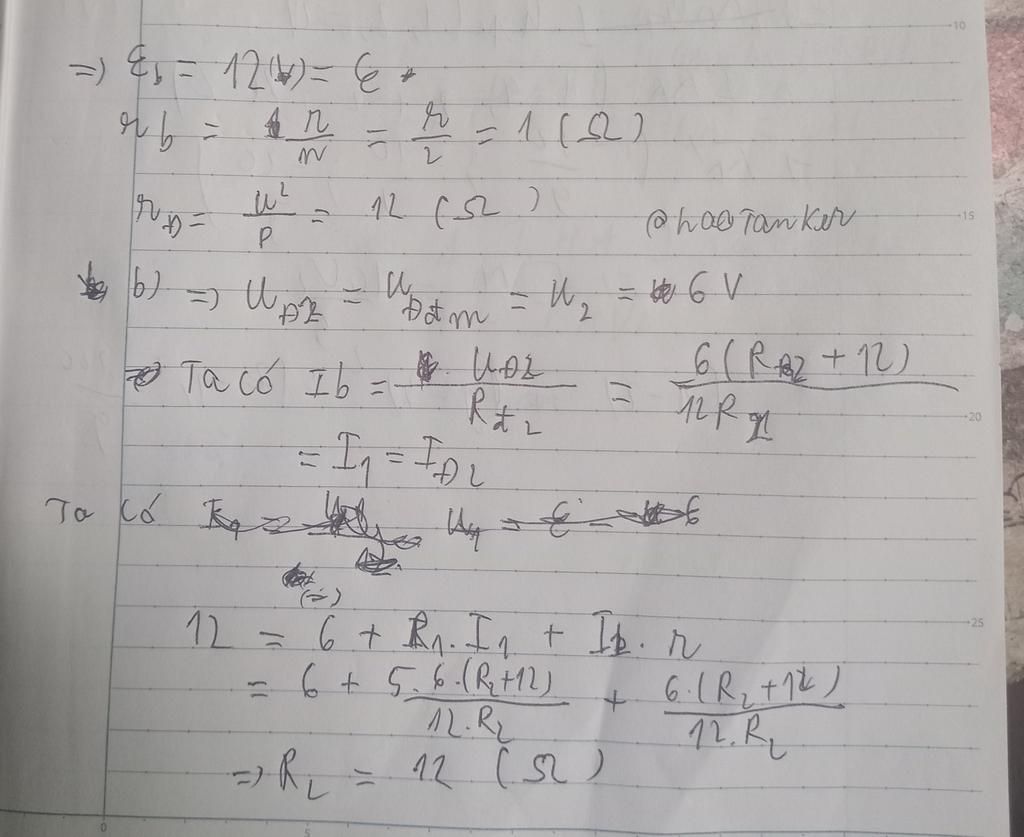 =) ℰ₁ = 12(V) = ℰ
r b = r/n = r/2 = 1 (Ω)
r_Đ = U²/P = 12 (Ω)
@haoTanker
b) => U_Đ2 = U_Đđm = U₂ = 6 V
=> Ta có Ib = U_Đ2/R_t2 = 6(R_Đ2 + 12)/12R_2
= I₁ = I_Đ2
Ta có U₁ = ℰ - 6
(=)
12 = 6 + R₁.I₁ + Ib. r
= 6 + 5.6.(R₂+12)/12.R₂ + 6.(R₂+12)/12.R₂
=) R₂ = 12 (Ω)
10
15
20
25
0
5